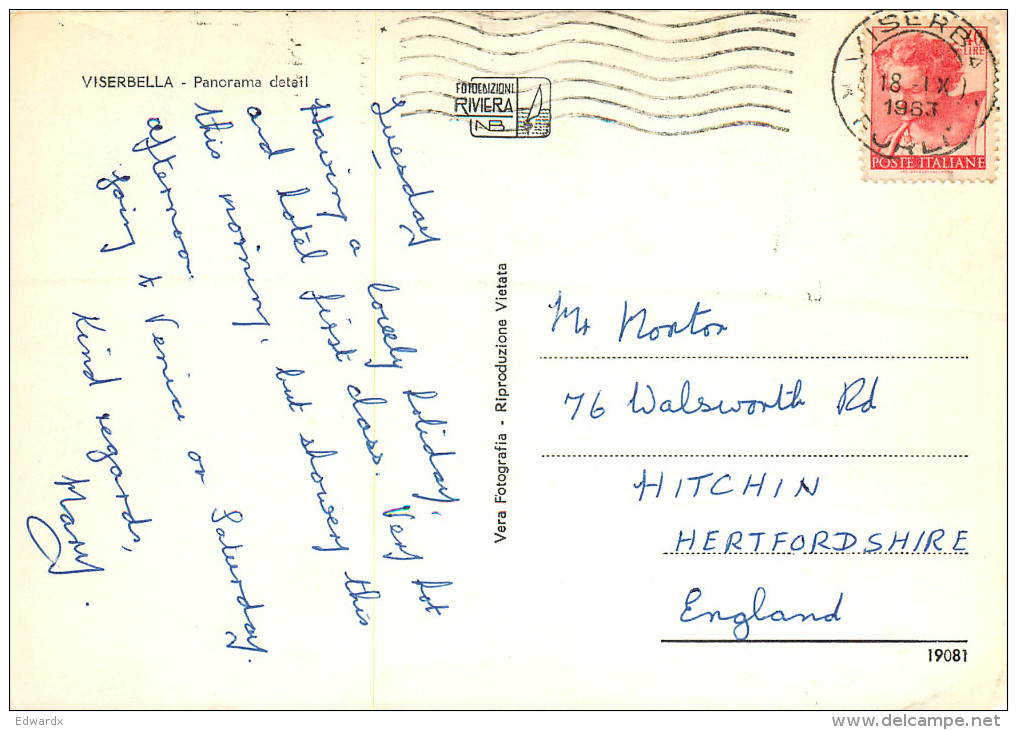 VISERBELLA - Panorama detail
FOTOEDIZIONI
RIVIERA
VISERBA
18 IX
1963
FORLI
40
LIRE
POSTE ITALIANE
Tuesday
Having a lovely holiday.
and hotel first class. Very hot
this morning, but showery this
afternoon.
going to Venice on Saturday.
Kind regards,
Mary.
Vera Fotografia - Riproduzione Vietata
Mr Norton
76 Walsworth Rd
HITCHIN
HERTFORDSHIRE
England
19081
Edwardx
www.delcampe.net